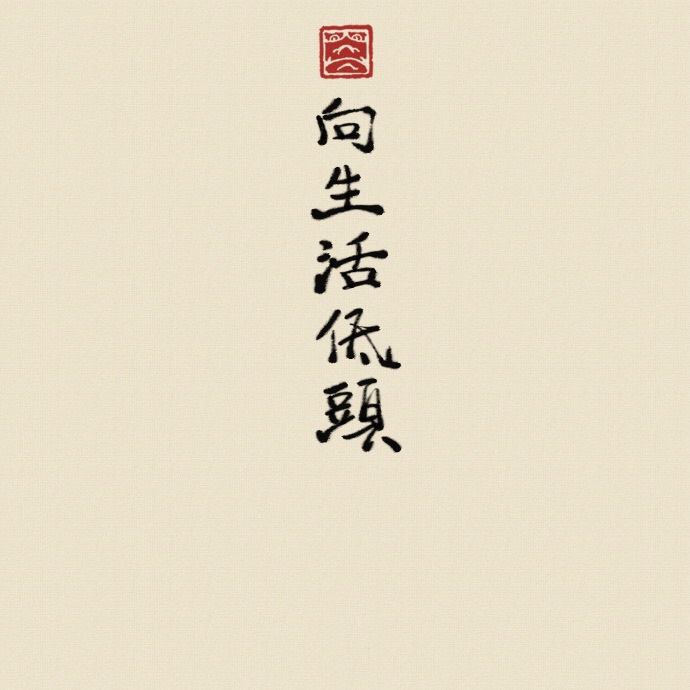 向生活低頭